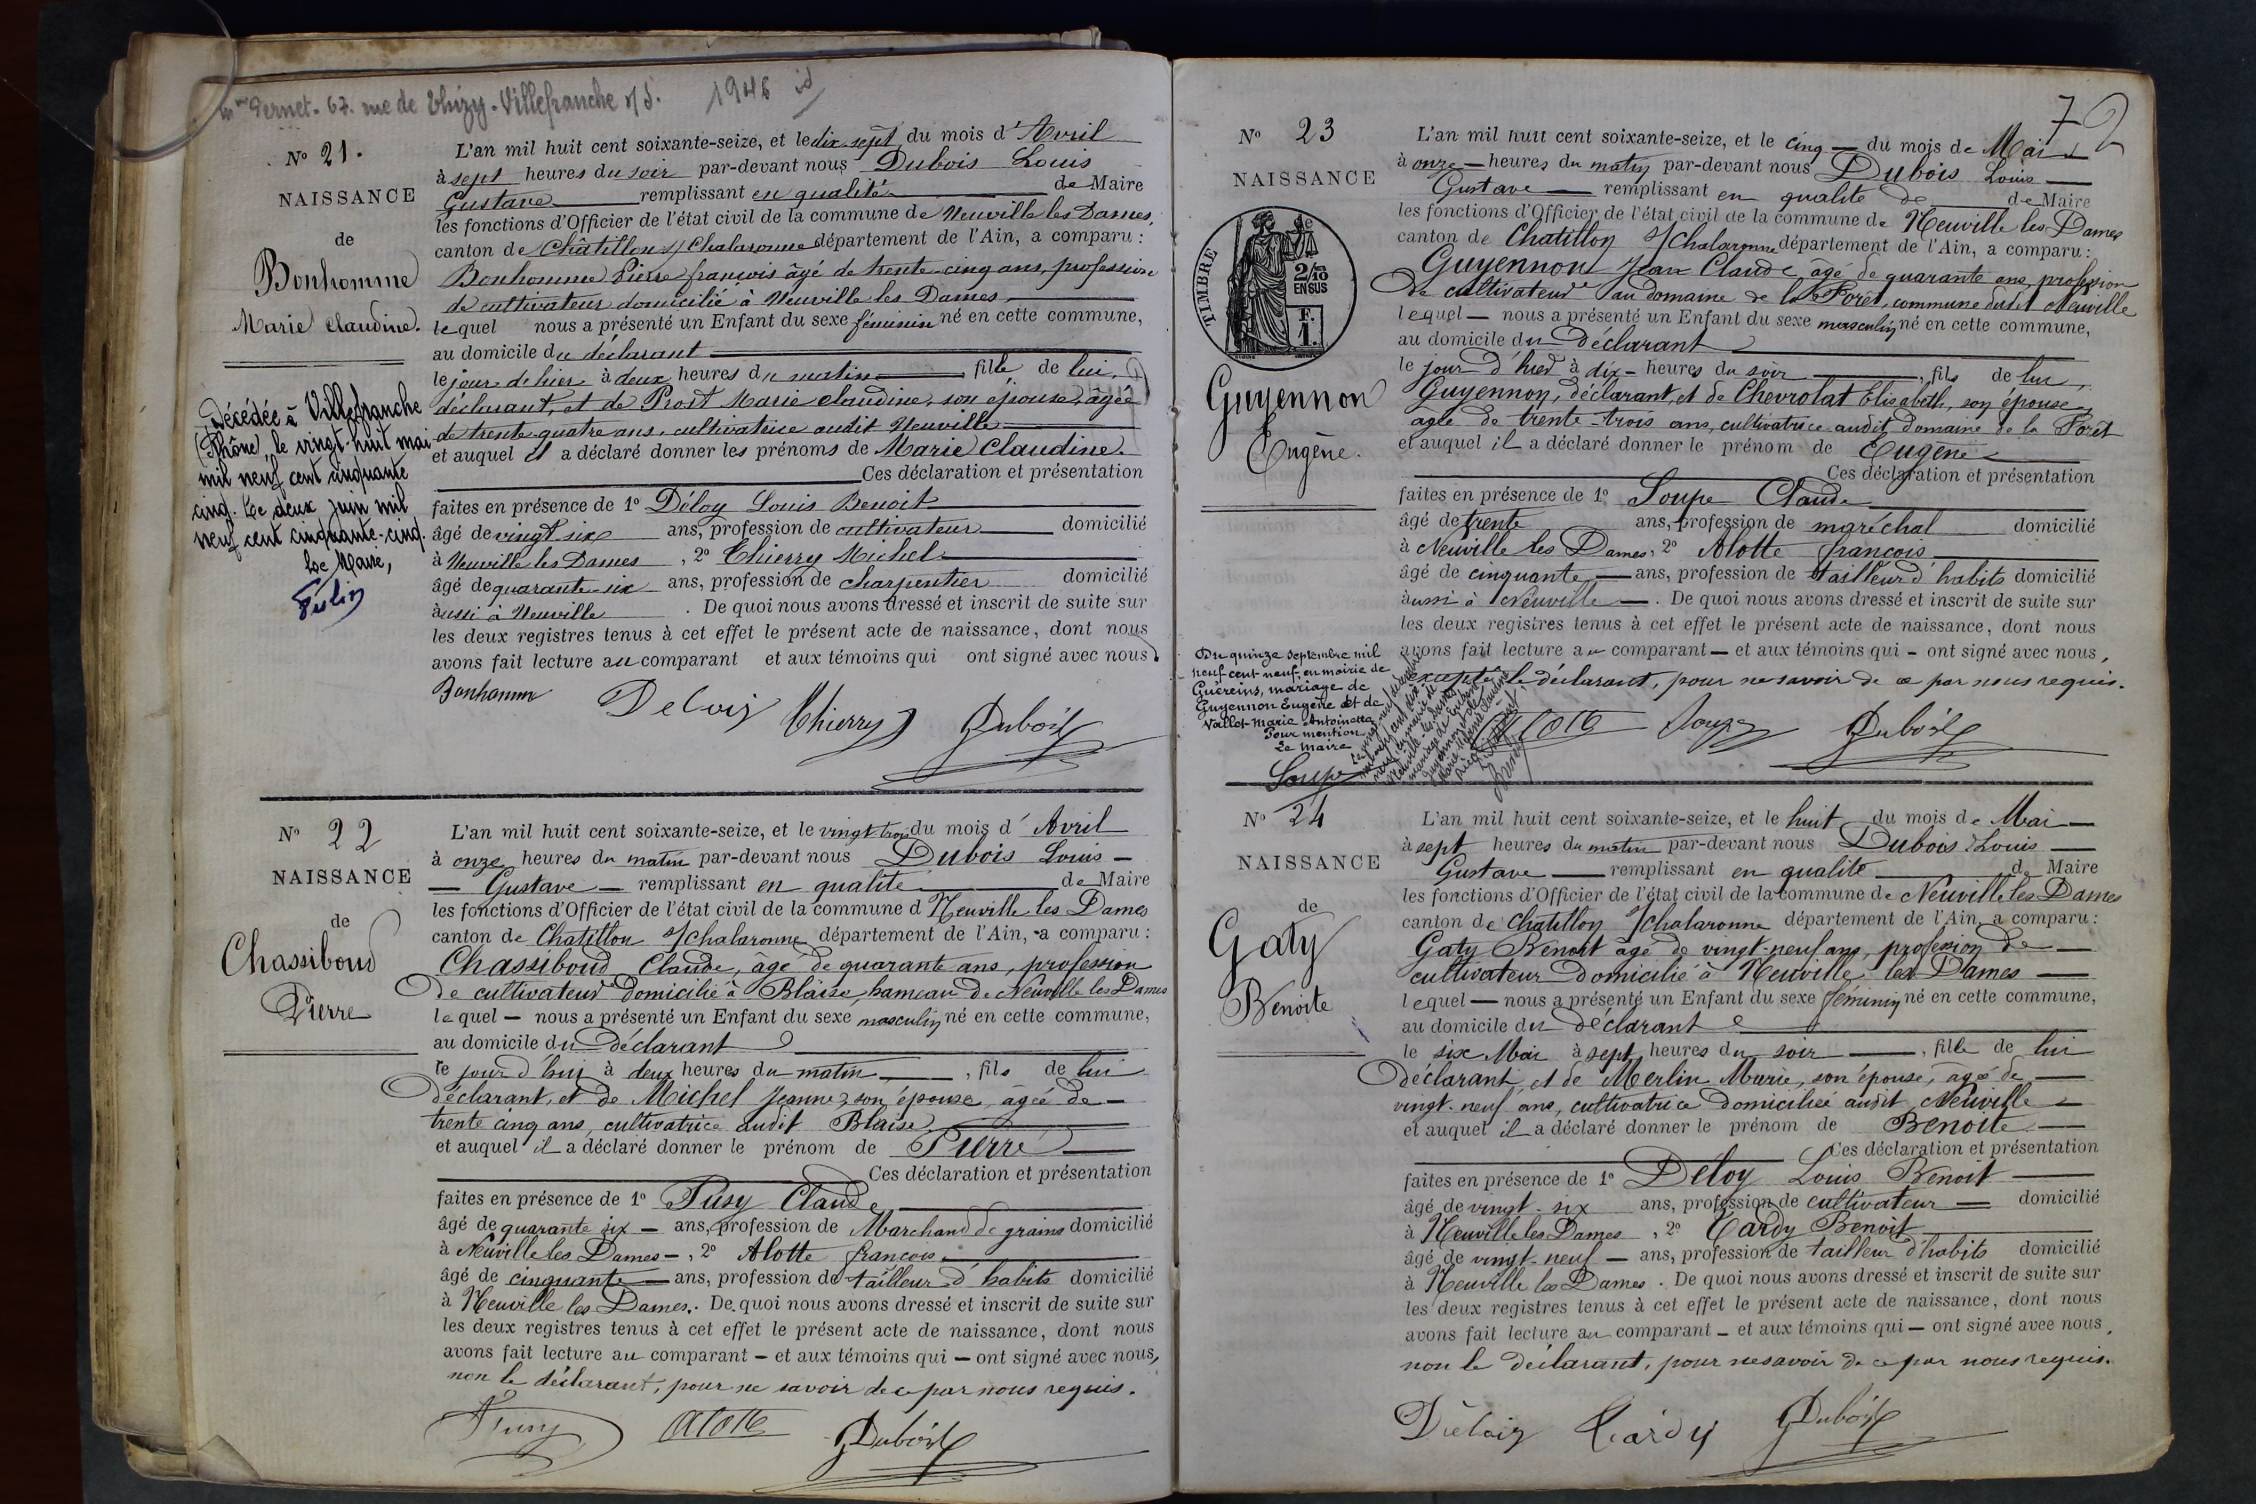 Mme Pernet. 67. rue de Thizy. Villefranche s/S. 1946 id
N° 21.
NAISSANCE
de
Bonhomme
Marie Claudine.
Décédée à Villefranche
(Rhône), le vingt-huit mai
mil neuf cent cinquante
cinq. Le deux juin mil
neuf cent cinquante-cinq.
Le Maire,
L'an mil huit cent soixante-seize, et le dix sept du mois d'Avril
à sept heures du soir par-devant nous Dubois Louis
Gustave remplissant en qualité de Maire
les fonctions d'Officier de l'état civil de la commune de Neuville les Dames,
canton de Châtillon s/ Chalaronne département de l'Ain, a comparu :
Bonhomme Pierre françois âgé de trente-cinq ans, profession
de cultivateur domicilié à Neuville les Dames
lequel nous a présenté un Enfant du sexe féminin né en cette commune,
au domicile du déclarant
le jour de hier à deux heures du matin fille de lui,
déclarant, et de Prost Marie Claudine, son épouse, âgée
de trente-quatre ans, cultivatrice audit Neuville
et auquel il a déclaré donner les prénoms de Marie Claudine.
Ces déclaration et présentation
faites en présence de 1° Déloy Louis Benoit
âgé de vingt six ans, profession de cultivateur domicilié
à Neuville les Dames, 2° Thierry Michel
âgé de quarante-six ans, profession de charpentier domicilié
aussi à Neuville. De quoi nous avons dressé et inscrit de suite sur
les deux registres tenus à cet effet le présent acte de naissance, dont nous
avons fait lecture au comparant et aux témoins qui ont signé avec nous.
Bonhomme Deloiy Thierry Dubois
N° 22
NAISSANCE
de
Chassiboud
Pierre
L'an mil huit cent soixante-seize, et le vingt trois du mois d'Avril
à onze heures du matin par-devant nous Dubois Louis –
– Gustave – remplissant en qualité de Maire
les fonctions d'Officier de l'état civil de la commune d Neuville les Dames
canton de Chatillon s/ chalaronne département de l'Ain, a comparu :
Chassiboud Claude, âgé de quarante ans, profession
de cultivateur domicilié à Blaise, hameau de Neuville les Dames
lequel – nous a présenté un Enfant du sexe masculin né en cette commune,
au domicile du Déclarant
le jour d'hui à deux heures du matin, fils de lui
déclarant, et de Michel Jeanne, son épouse, âgée de –
trente cinq ans, cultivatrice audit Blaise
et auquel il a déclaré donner le prénom de Pierre
Ces déclaration et présentation
faites en présence de 1° Pusy Claude
âgé de quarante six – ans, profession de Marchand de grains domicilié
à Neuville les Dames –, 2° Alotte françois
âgé de cinquante ans, profession de tailleur d'habits domicilié
à Neuville les Dames. De quoi nous avons dressé et inscrit de suite sur
les deux registres tenus à cet effet le présent acte de naissance, dont nous
avons fait lecture au comparant – et aux témoins qui – ont signé avec nous,
non le déclarant, pour ne savoir de ce par nous requis.
Pusy Alotte Dubois
72
N° 23
NAISSANCE
TIMBRE
2/10
EN SUS
F.
1.
Guyennon
Eugène.
Du quinze septembre mil
neuf cent neuf, en mairie de
Guéreins, mariage de
Guyennon Eugène et de
Vallot Marie Antoinette
Pour mention
Le maire
Soupe
L'an mil huit cent soixante-seize, et le cinq – du mois de Mai
à onze – heures du matin par-devant nous Dubois Louis
Gustave remplissant en qualité de de Maire
les fonctions d'Officier de l'état civil de la commune de Neuville les Dames
canton de Chatillon s/ Chalaronne département de l'Ain, a comparu :
Guyennon Jean Claude âgé de quarante ans, profession
de cultivateur au domaine de la Forêt, commune dudit Neuville
lequel – nous a présenté un Enfant du sexe masculin né en cette commune,
au domicile du Déclarant
le jour d'hier à dix – heures du soir, fils de lui,
Guyennon, déclarant, et de Chevrolat Elisabeth, son épouse
âgée de trente-trois ans, cultivatrice audit Domaine de la Forêt
et auquel il a déclaré donner le prénom de Eugène
Ces déclaration et présentation
faites en présence de 1° Soupe Claude
âgé de trente ans, profession de maréchal domicilié
à Neuville les Dames, 2° Alotte françois
âgé de cinquante, – ans, profession de tailleur d'habits domicilié
aussi à Neuville –. De quoi nous avons dressé et inscrit de suite sur
les deux registres tenus à cet effet le présent acte de naissance, dont nous
avons fait lecture au comparant – et aux témoins qui – ont signé avec nous,
excepté le déclarant, pour ne savoir de ce par nous requis.
Alotte Soupe Dubois
N° 24
NAISSANCE
de
Gaty
Benoite
L'an mil huit cent soixante-seize, et le huit du mois de Mai –
à sept heures du matin par-devant nous Dubois Louis
Gustave remplissant en qualité de Maire
les fonctions d'Officier de l'état civil de la commune de Neuville les Dames
canton de chatillon s/ chalaronne département de l'Ain, a comparu :
Gaty Benoit âgé de vingt-neuf ans, profession de –
cultivateur Domicilié à Neuville les Dames –
lequel – nous a présenté un Enfant du sexe féminin né en cette commune,
au domicile du déclarant
le six Mai à sept heures du soir, fille de lui
déclarant, et de Merlin Marie, son épouse, âgée de –
vingt-neuf ans, cultivatrice domiciliée audit Neuville –
et auquel il a déclaré donner le prénom de Benoite –
Ces déclaration et présentation
faites en présence de 1° Déloy Louis Benoit
âgé de vingt-six ans, profession de cultivateur – domicilié
à Neuville les Dames, 2° Cardy Benoit
âgé de vingt-neuf – ans, profession de tailleur d'habits domicilié
à Neuville les Dames. De quoi nous avons dressé et inscrit de suite sur
les deux registres tenus à cet effet le présent acte de naissance, dont nous
avons fait lecture au comparant – et aux témoins qui – ont signé avec nous,
non le déclarant, pour ne savoir de ce par nous requis.
Déloiy Cardy Dubois